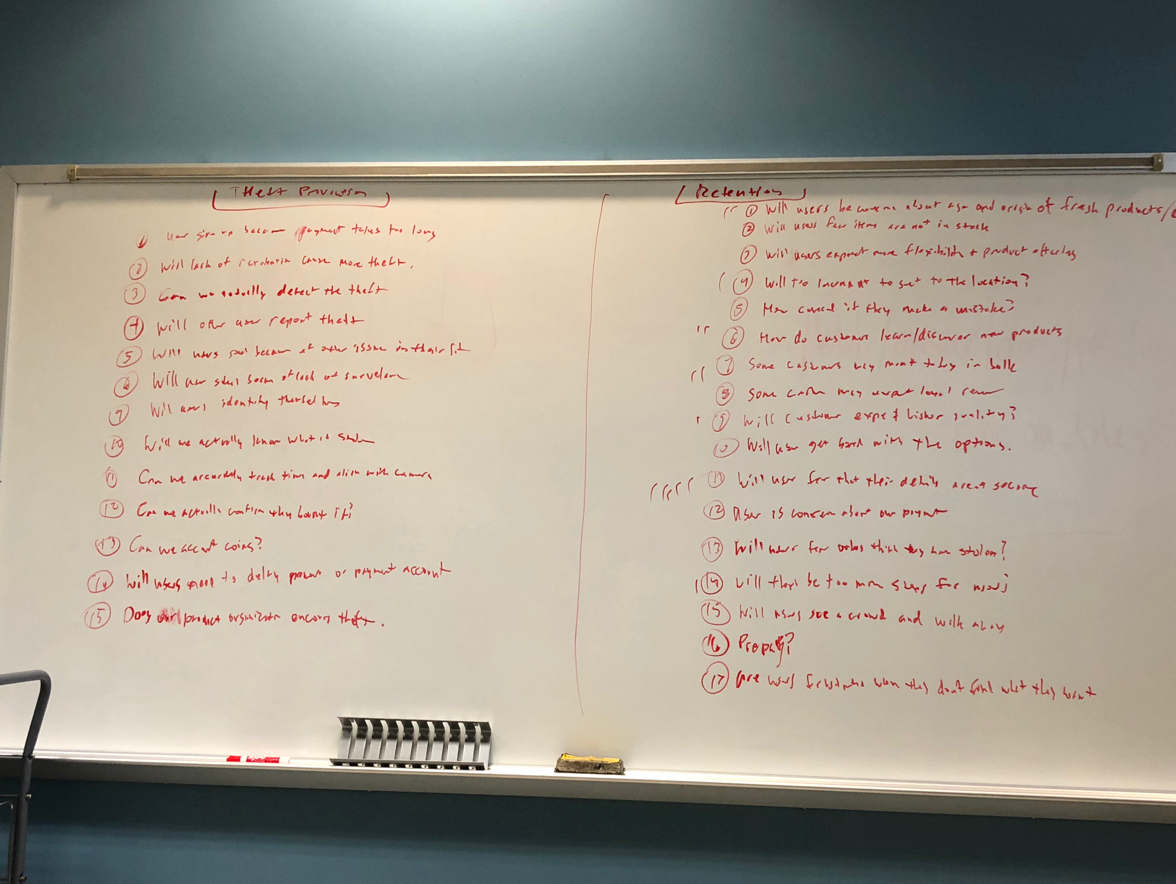 Theft Prevention
1 User give up because payment takes too long
2 Will lack of cause more theft.
3 Can we actually detect the theft
4 Will other user report theft
5 Will users because of other issue in their
6 Will user steal of lack of
9 Will users identify themselves
10 Will we actually know what is
11 Can we accurately track time and align with camera
12 Can we actually confirm they bought it?
13 Can we accept coins?
14 Will users to delay or payment account
15 Does our product organization theft.
Retention
1 Will users be about age and origin of fresh products/
2 Will users fear items are not in stock
3 Will users expect more flexibility + product offering
4 Will to get to the location?
5 How cancel if they make a mistake?
6 How do customers learn/discover new products
7 Some customers may want to buy in bulk
8 Some may expect
9 Will customer expect higher quality?
10 Will user get bored with the options.
11 Will user fear that their details aren't secure
12 User is concern about our payment
13 Will users fear others think they have stolen?
14 Will there be too many steps for
15 Will users see a crowd and walk away
16
17 are users when they don't find what they want